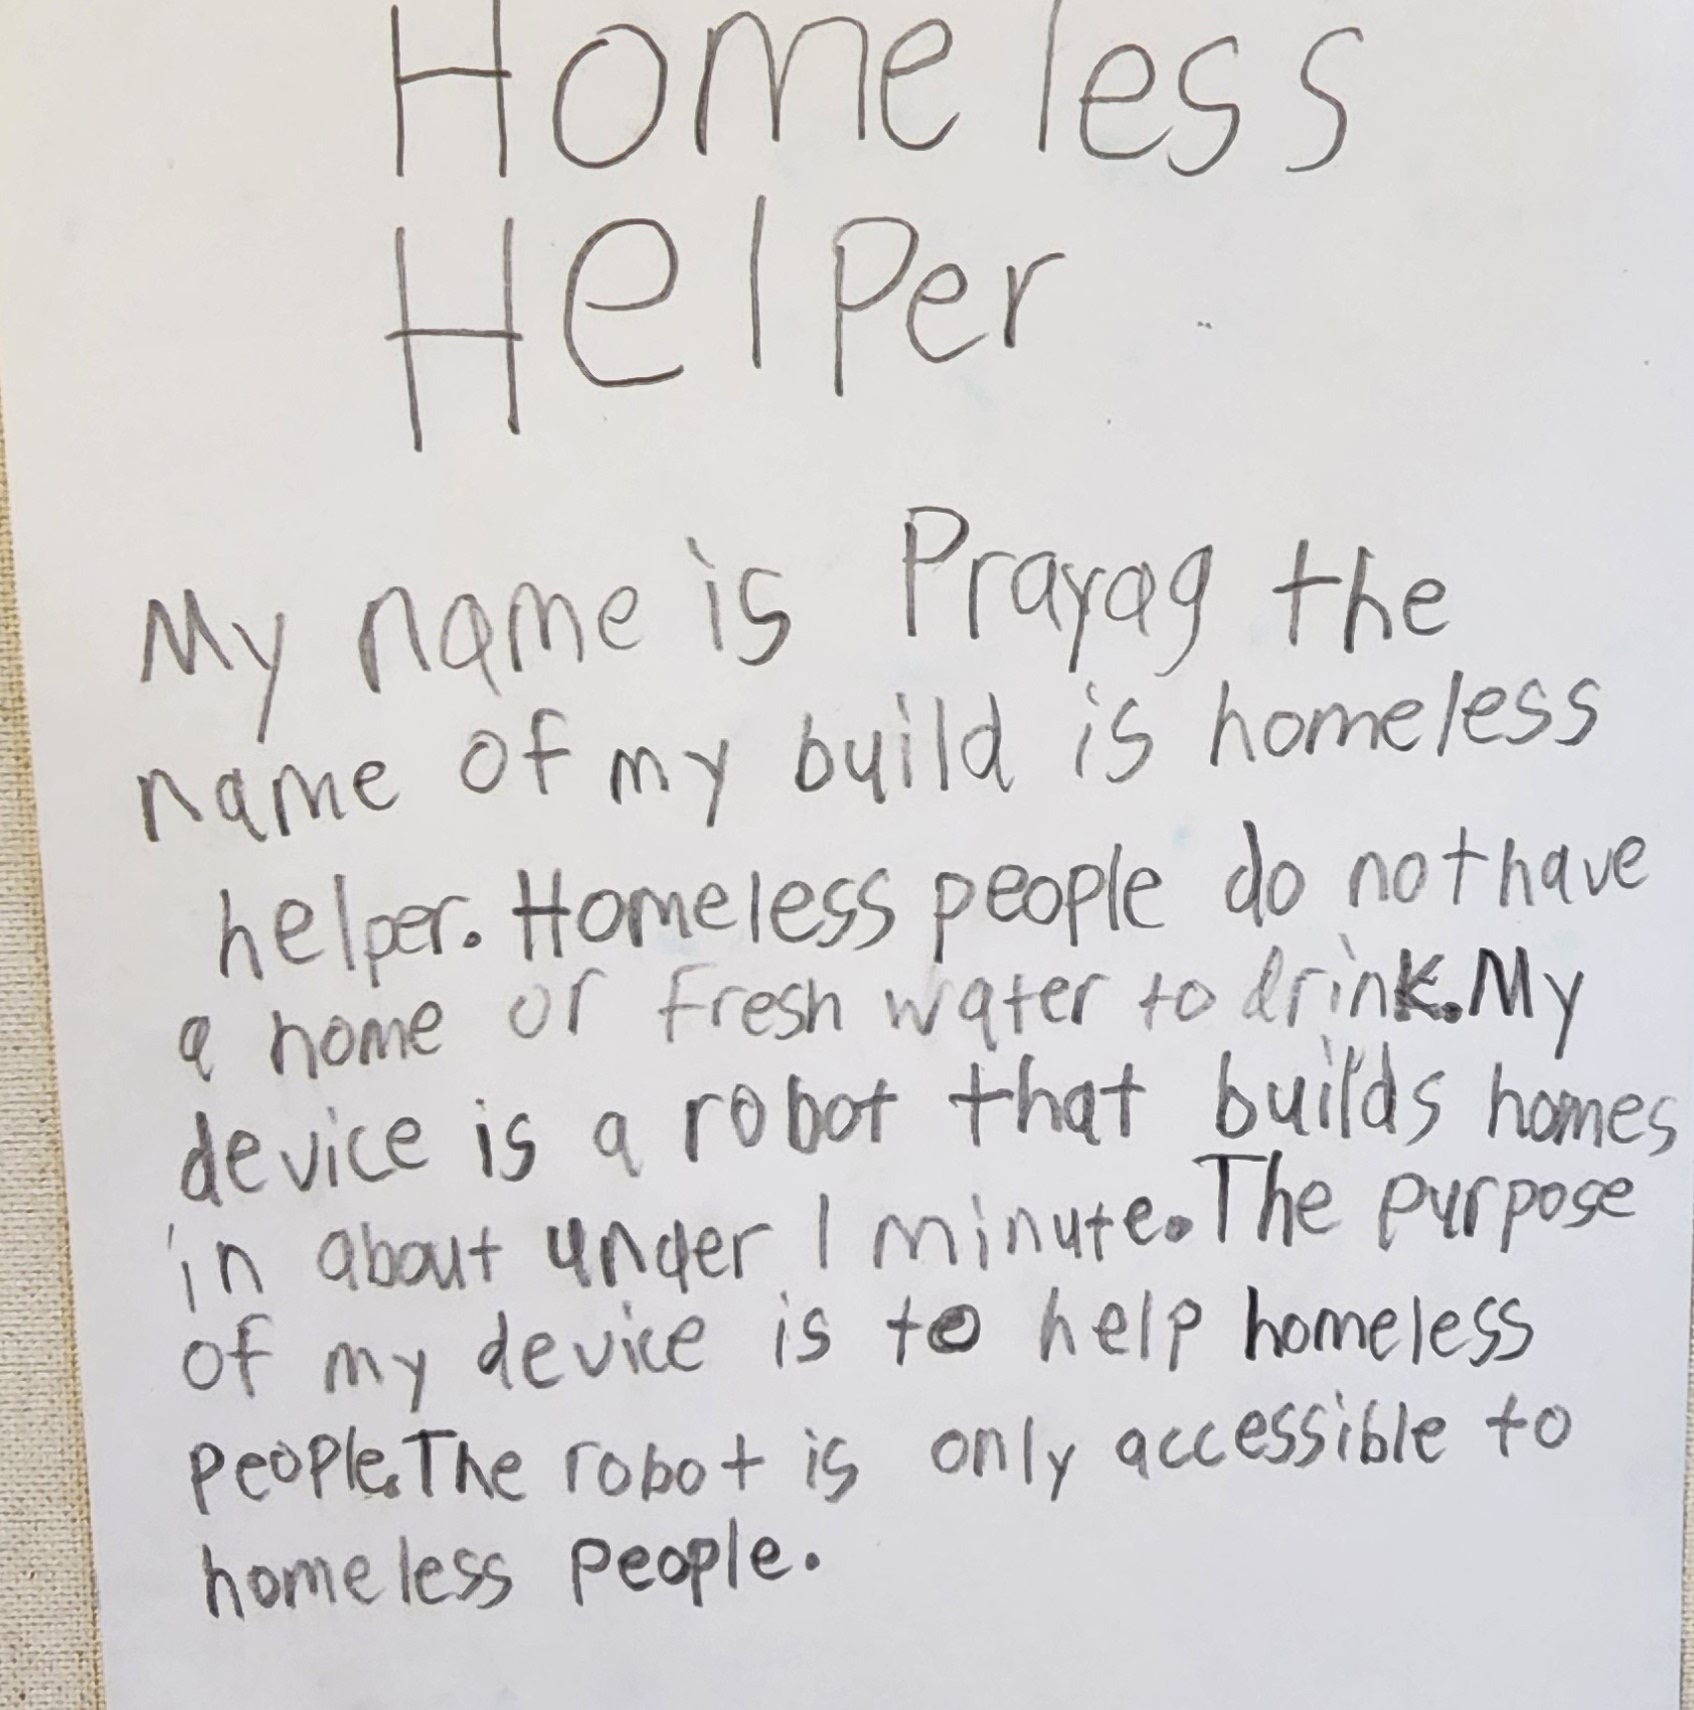 Homeless
Helper
My name is Prayag the
name of my build is homeless
helper. Homeless people do not have
a home or fresh water to drink. My
device is a robot that builds homes
in about under 1 minute. The purpose
of my device is to help homeless
people. The robot is only accessible to
homeless people.